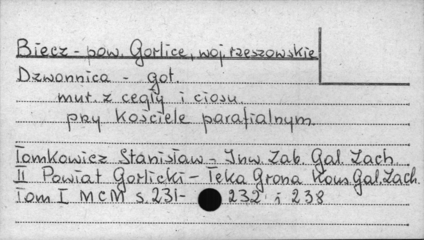 Biecz - pow. Gorlice, woj. rzeszowskie
Dzwonnica - got.
mur. z cegły i ciosu
przy kościele parafialnym.
Tomkowicz Stanisław - Inw. Zab. Gal. Zach.
II Powiat Gorlicki - Teka Grona Kons. Gal. Zach.
Tom I MCM s. 231- 232 i 238